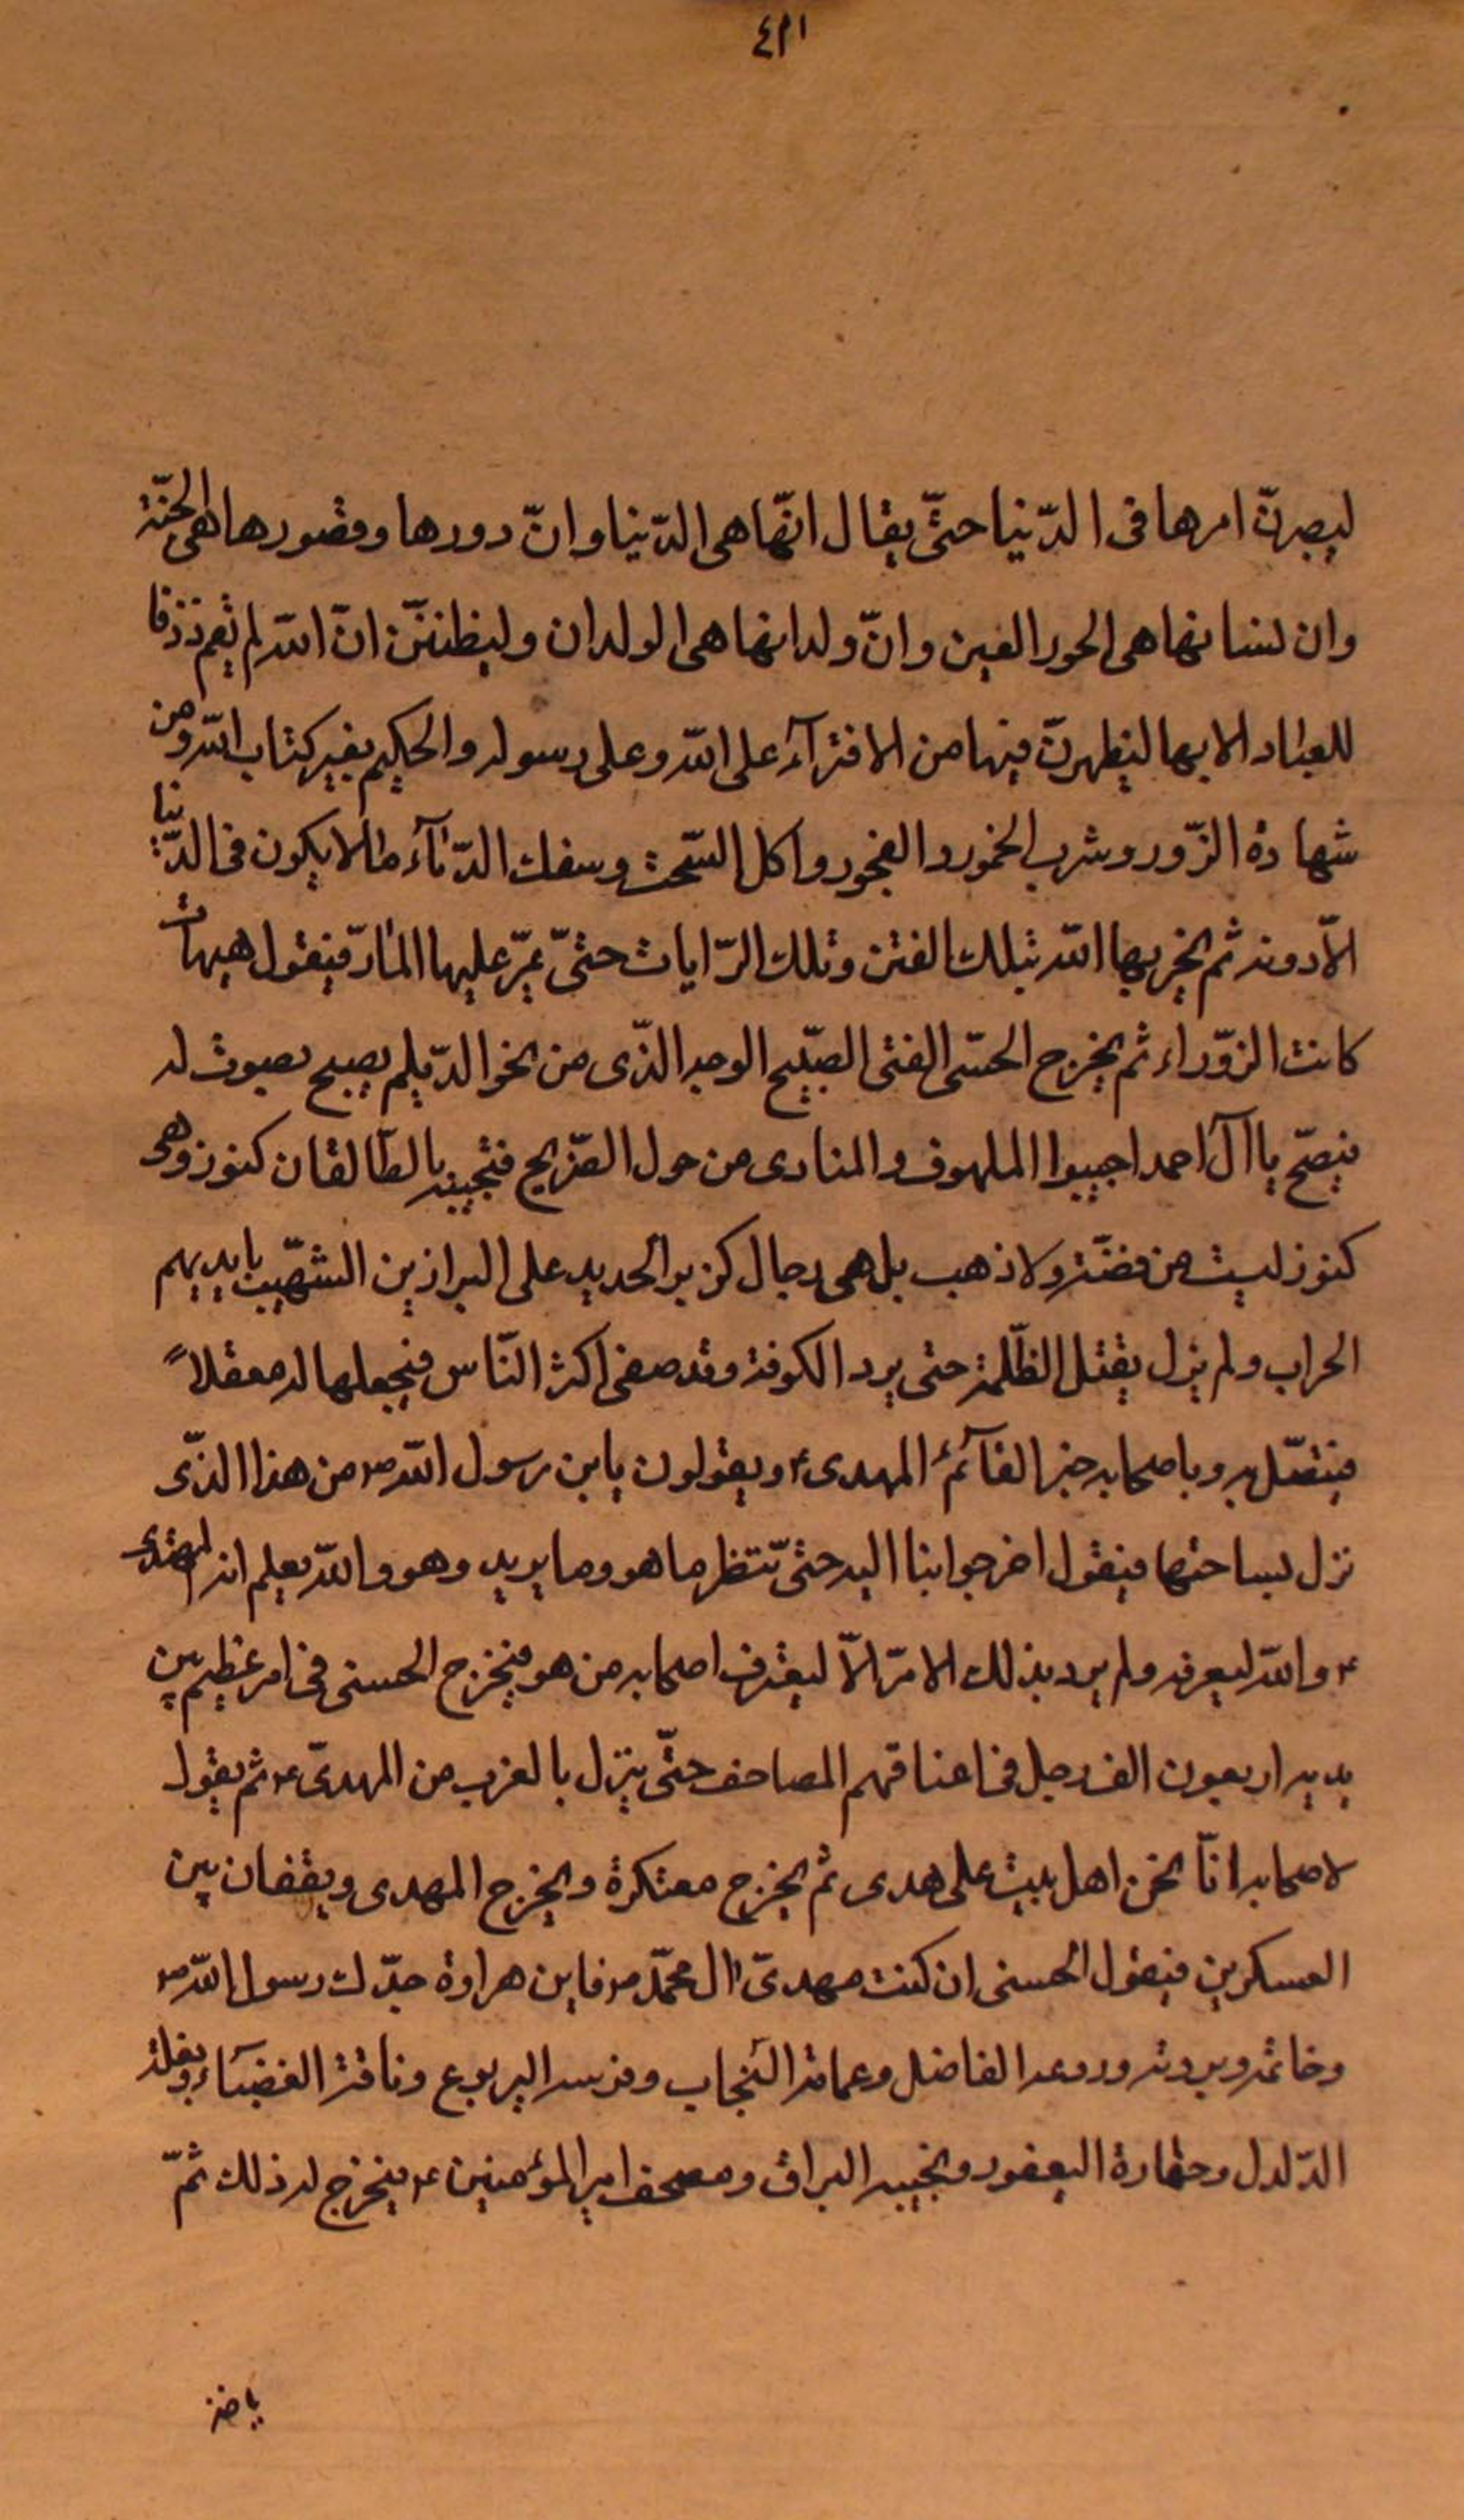 ٤٢١
ليصيرنّ امرها فى الدّنيا حتّى يقال انّها هى الدّنيا وانّ دورها وقصورها هى الجنّة
وان نسائها هى الحور العين وانّ ولدانها هى الولدان وليظننّ انّ اللّه لم يقسم رزقا
للعباد الا بها ليظهرنّ فيها من الافترآء على اللّه وعلى رسوله والحكيم بغير كتاب اللّه ومن
شهادة الزّور وشرب الخمور والفجور واكل السّحت وسفك الدّمآء ما لا يكون فى الدّنيا
الاّ دونه ثم يخربها اللّه بتلك الفتن وتلك الرّايات حتىّ يمرّ عليها المارّ فيقول هيهات
كانت الزّوراء ثم يخرج الحسنى الفتى الصّبيح الوجه الذّى من نحو الديّلم يصيح بصوت له
فيصّح يا آل احمد اجيبوا الملهوف والمنادى من حول الضّريح فتجيبه بالطّالقان كنوز وهى
كنوز ليست من فضّة ولا ذهب بل هى رجال كزبر الحديد على البراذين الشّهب بايديهم
الحراب ولم يزل يقتل الظّلمة حتى يرد الكوفة وقد صفى اكثر النّاس فيجعلها له معقلاً
فيتصّل به وباصحابه خبر القآئم المهدى ع ويقولون يابن رسول اللّه ص من هذا الذّى
نزل بساحتها فيقول اخرجوا بنا اليه حتى ننتظر ما هو وما يريد وهو واللّه يعلم انه المهدى
ع واللّه ليعرفه ولم يرد بذلك الامر الاّ ليعترف اصحابه من هو فيخرج الحسنى فى امر عظيم بين
يديه اربعون الف رجل فى اعناقهم المصاحف حتّى ينزل بالغرب من المهدىّ ع ثم يقول
لاصحابه انّا نحن اهل بيت على هدى ثم يخرج معتكرة ويخرج المهدى ويقفان بين
العسكرين فيقول الحسنى ان كنت مهدىّ ال محمّد ص فاين هراوة جدّك رسول اللّه ص
وخاتمه وبردته ودرعه الفاضل وعمامته السّحاب وفرسه اليربوع وناقته الغضبآء وبغلته
الدّلدل وحماره اليعفور ونجيبه البراق ومصحف امير المؤمنين ع فيخرج له ذلك ثمّ
ياخذ